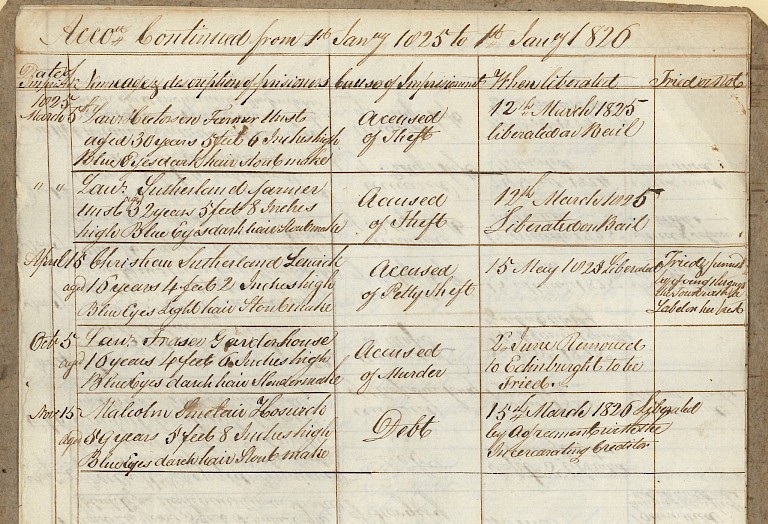 Accot Continued from 1st Jany 1825 to 1st Jany 1826
Date of
Names ages description of prisoners
cause of Imprisonmt
When liberated
Tried or Not
1825
March 5th
Lawe
Farmer Unst
aged 30 years 5 feet 6 Inches high
Blue Eyes dark hair Stout make
Accused
of Theft
12th March 1825
liberated on Bail
" "
Lawe Sutherland farmer
Unst 32 years 5 feet 8 Inches
high Blue Eyes dark hair Stout make
Accused
of Theft
12th March 1825
Liberated on Bail
April 15
Christian Sutherland Lerwick
aged 10 years 4 feet 2 Inches high
Blue Eyes Light hair Stout make
Accused
of Petty Theft
15 May 1825 Liberated
Tried
the Town with a
Label on her brest
Octr 5
Lawe Fraser Garderhouse
aged 10 years 4 feet 6 Inches high
Blue Eyes dark hair Slender make
Accused
of Murder
2 June Removed
to Edinburgh to be
Tried.
Novr 15
Malcolm Sinclair Hoswick
aged 89 years 5 feet 8 Inches high
Blue Eyes dark hair Stout make
Debt
15th March 1826 Liberated
by Agreement with the
Incercarating Creditor